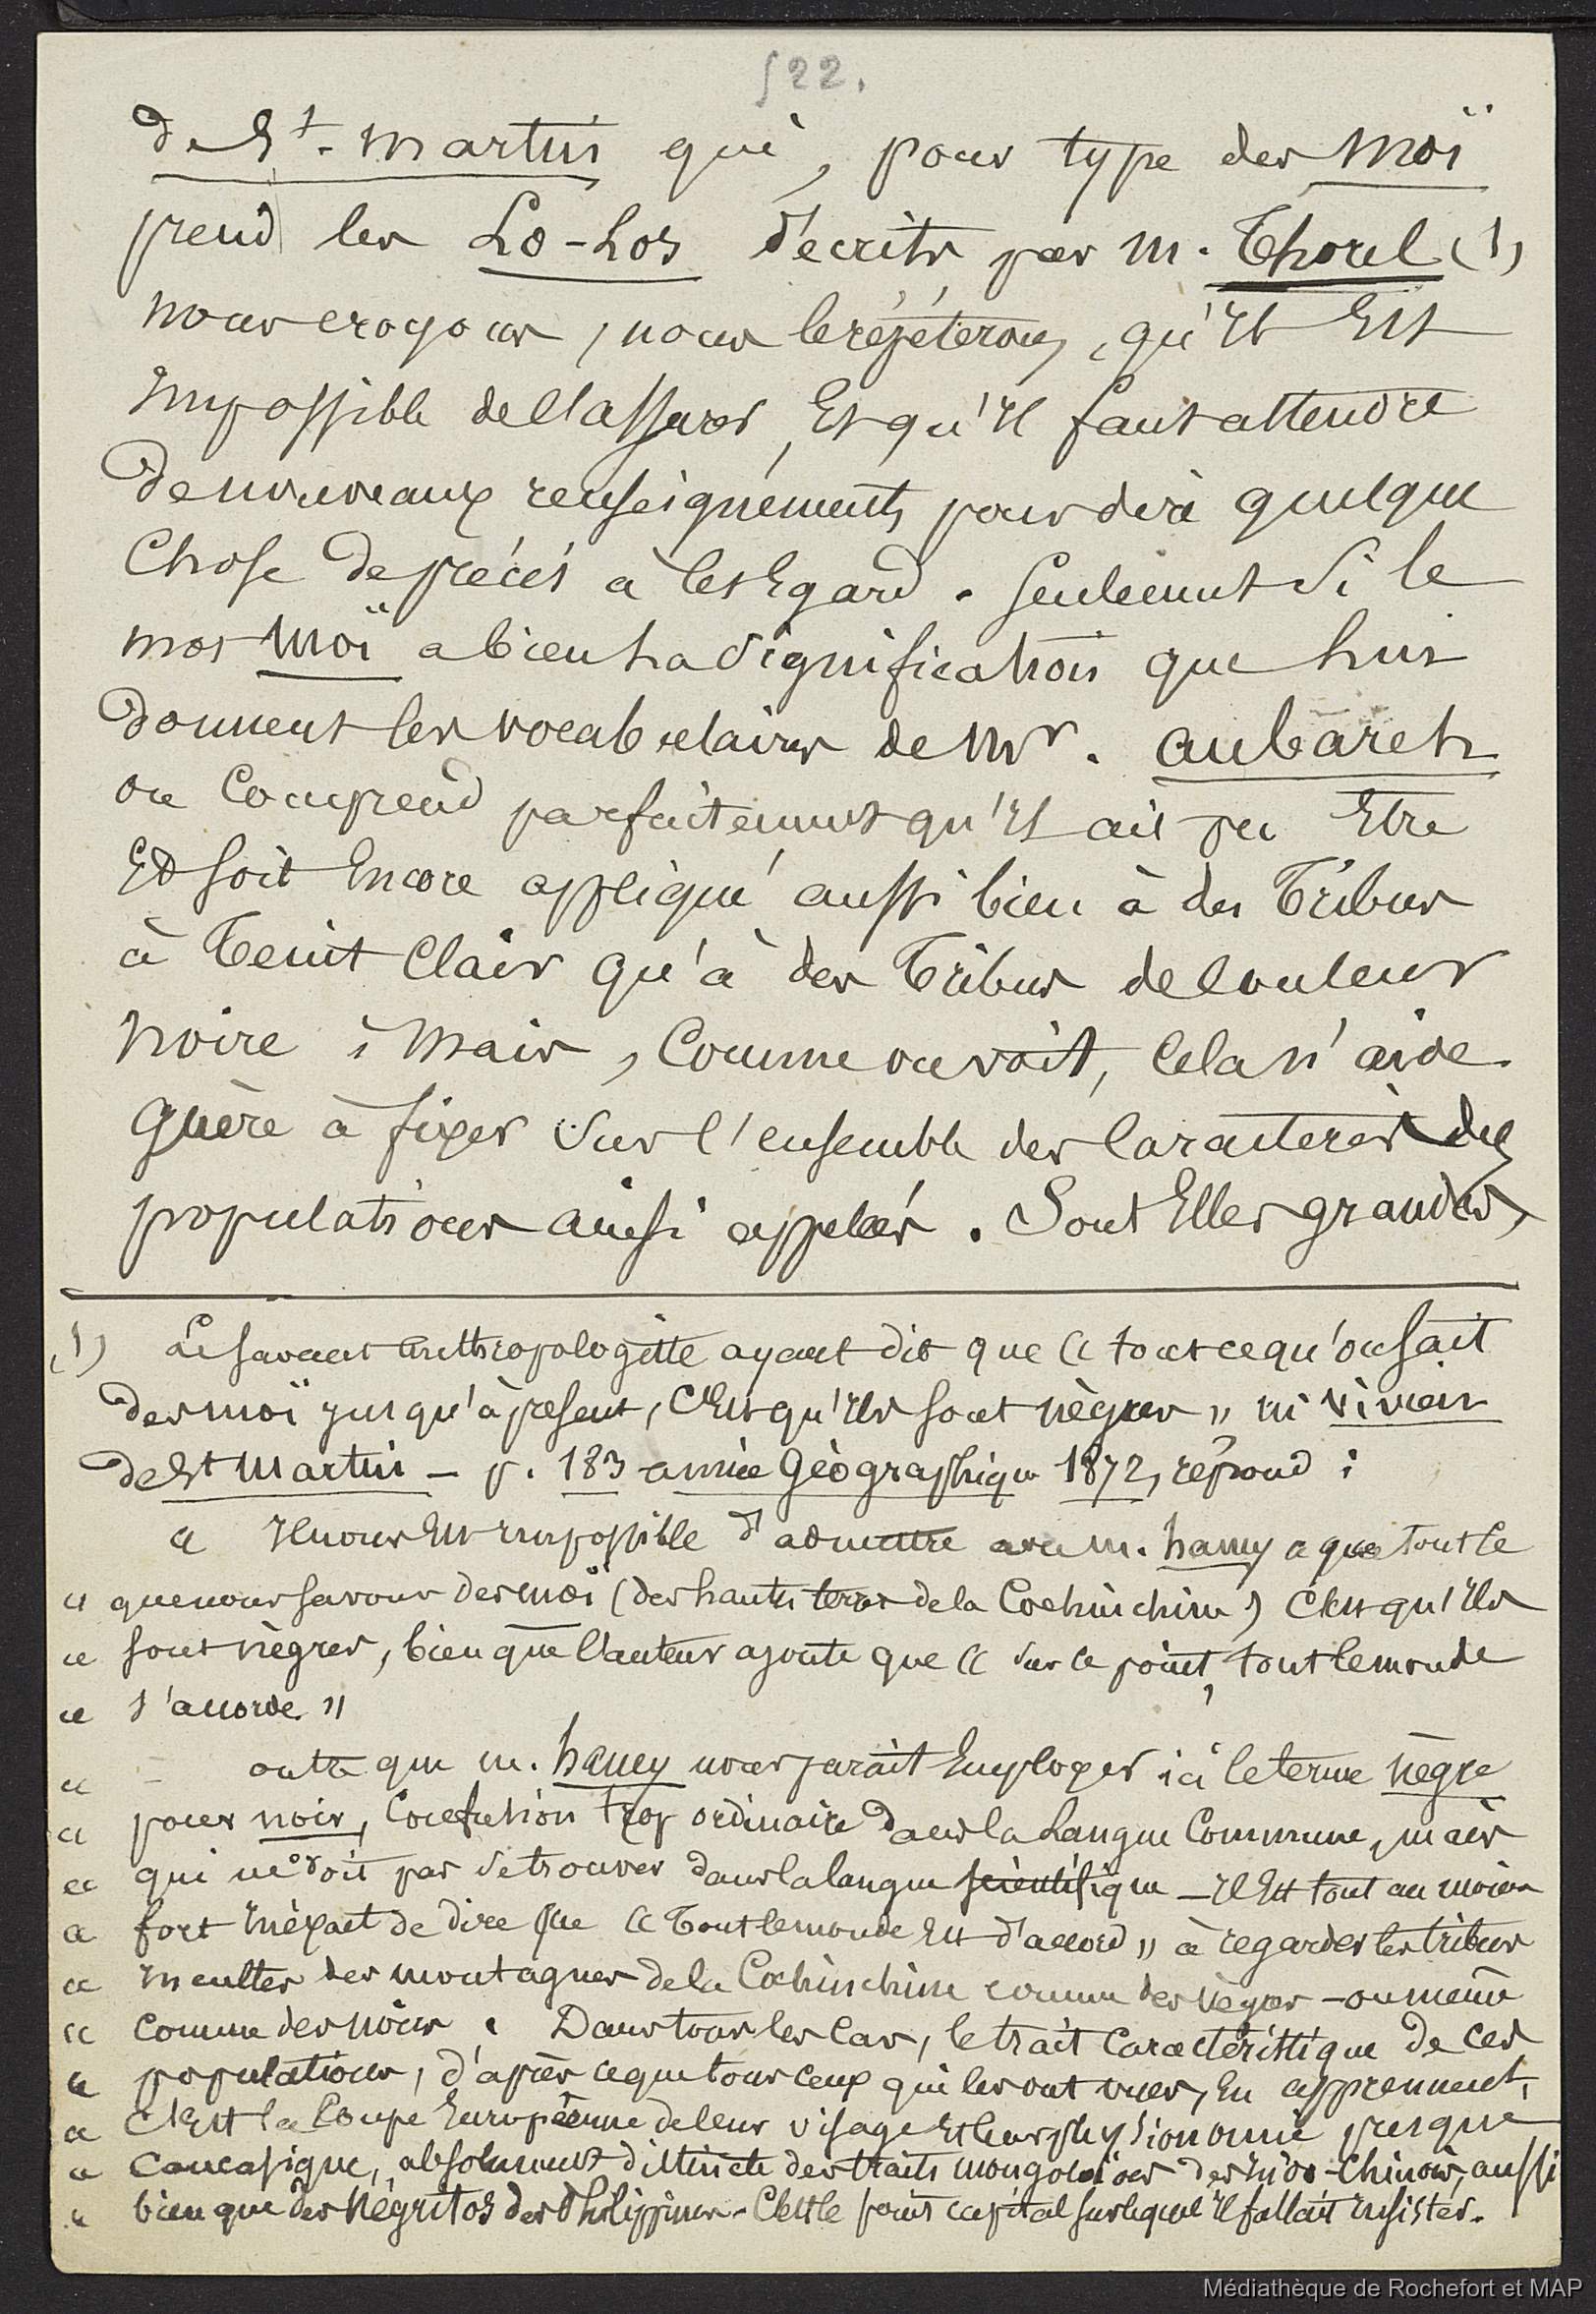 522.
de St. Martin qui, pour type des Moï
prend les Lo-Los décrits par M. Thorel (1)
nous croyons, nous le répéterons, qu'il Est
Impossible de classer, Et qu'il faut attendre
de nouveaux renseignements pour dire quelque
Chose de précis à cet Egard. Seulement si le
mot Moï a bien la signification que lui
donnent les vocabulaires de Mr. Aubaret
on Comprend parfaitement qu'il ait pu Etre
Et soit Encore appliqué aussi bien à des Tribus
à Teint Clair qu'à des Tribus de Couleur
Noire ; Mais, Comme on voit, Cela n'aide
Guère à fixer sur l'ensemble des Caractères des
populations ainsi appelées. Sont Elles grandes,
(1) Le savant anthropologiste ayant dit que « tout ce qu'on sait
des Moï jusqu'à présent, C'Est qu'ils sont nègres » M Vivien
de St Martin – p. 183 année Géographique 1872, répond :
« Il nous Est impossible d'admettre avec M. hamy « que tout ce
« que nous savons des Moï (des hautes terres de la Cochinchine) C'Est qu'ils
« sont nègres, bien que l'auteur ajoute que « sur ce point, tout le monde
« s'accorde »
« – outre que M. hamy nous parait Employer ici le terme nègre
« pour noir, Confusion trop ordinaire dans la Langue Commune, mais
« qui ne doit pas se trouver dans la langue scientifique – Il Est tout au moins
« fort Inéxact de dire que « Tout le monde Est d'accord » à regarder les tribus
« Incultes des montagnes de la Cochinchine comme des nègres – ou même
« Comme des noirs. Dans tous les Cas, le trait Caractéristique de Ces
« populations, d'après ce que tous ceux qui les ont vues, En apprennent,
« C'Est la Coupe Européenne de leur visage Et leur physionomie presque
« Caucasique, absolument distincte des traits mongoloïdes des Indo-Chinois, aussi
« bien que des Négritos des Philippines – C'Est le point capital sur lequel Il fallait insister.
Médiathèque de Rochefort et MAP